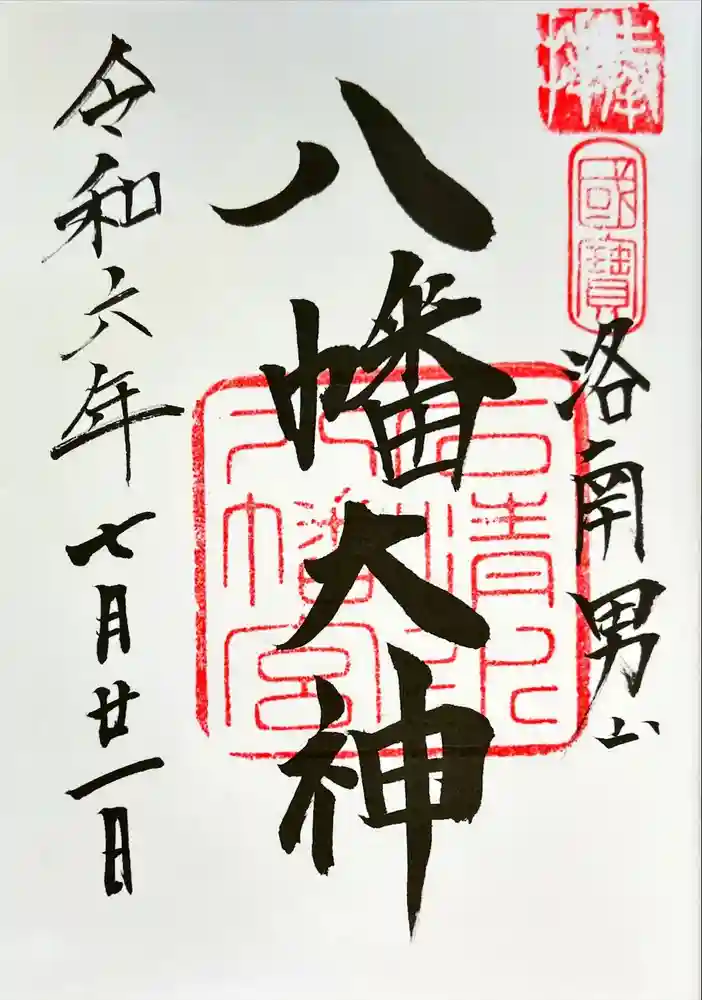 奉拝
國寶
洛南男山
八幡大神
石清水
八幡宮
令和六年七月廿一日